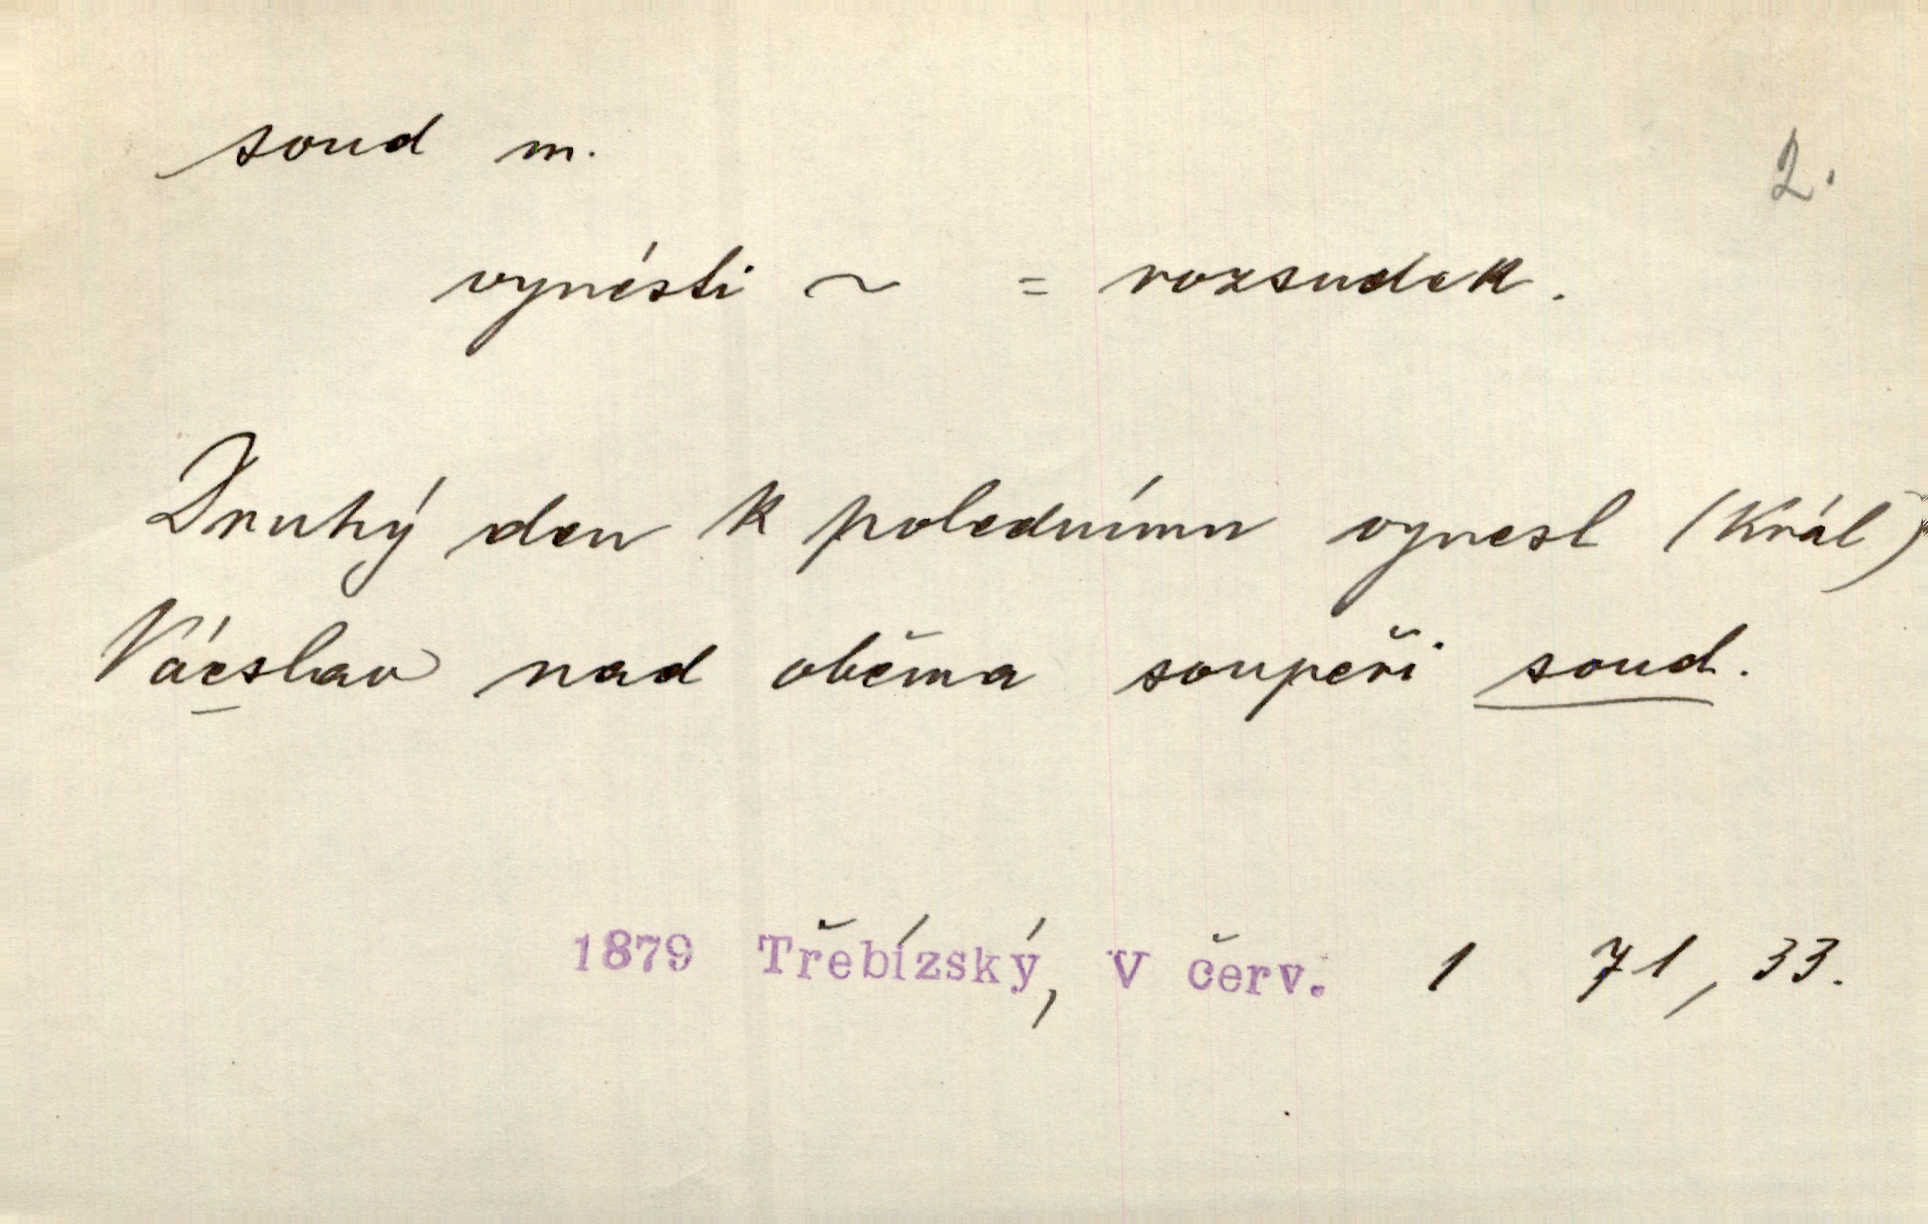 soud m. 2.
vynésti ~ = rozsudek.
Druhý den k polednímu vynesl (Král)
Váceslav nad oběma soupeři soud.
1879 Třebízský, V červ. 1 71, 33.